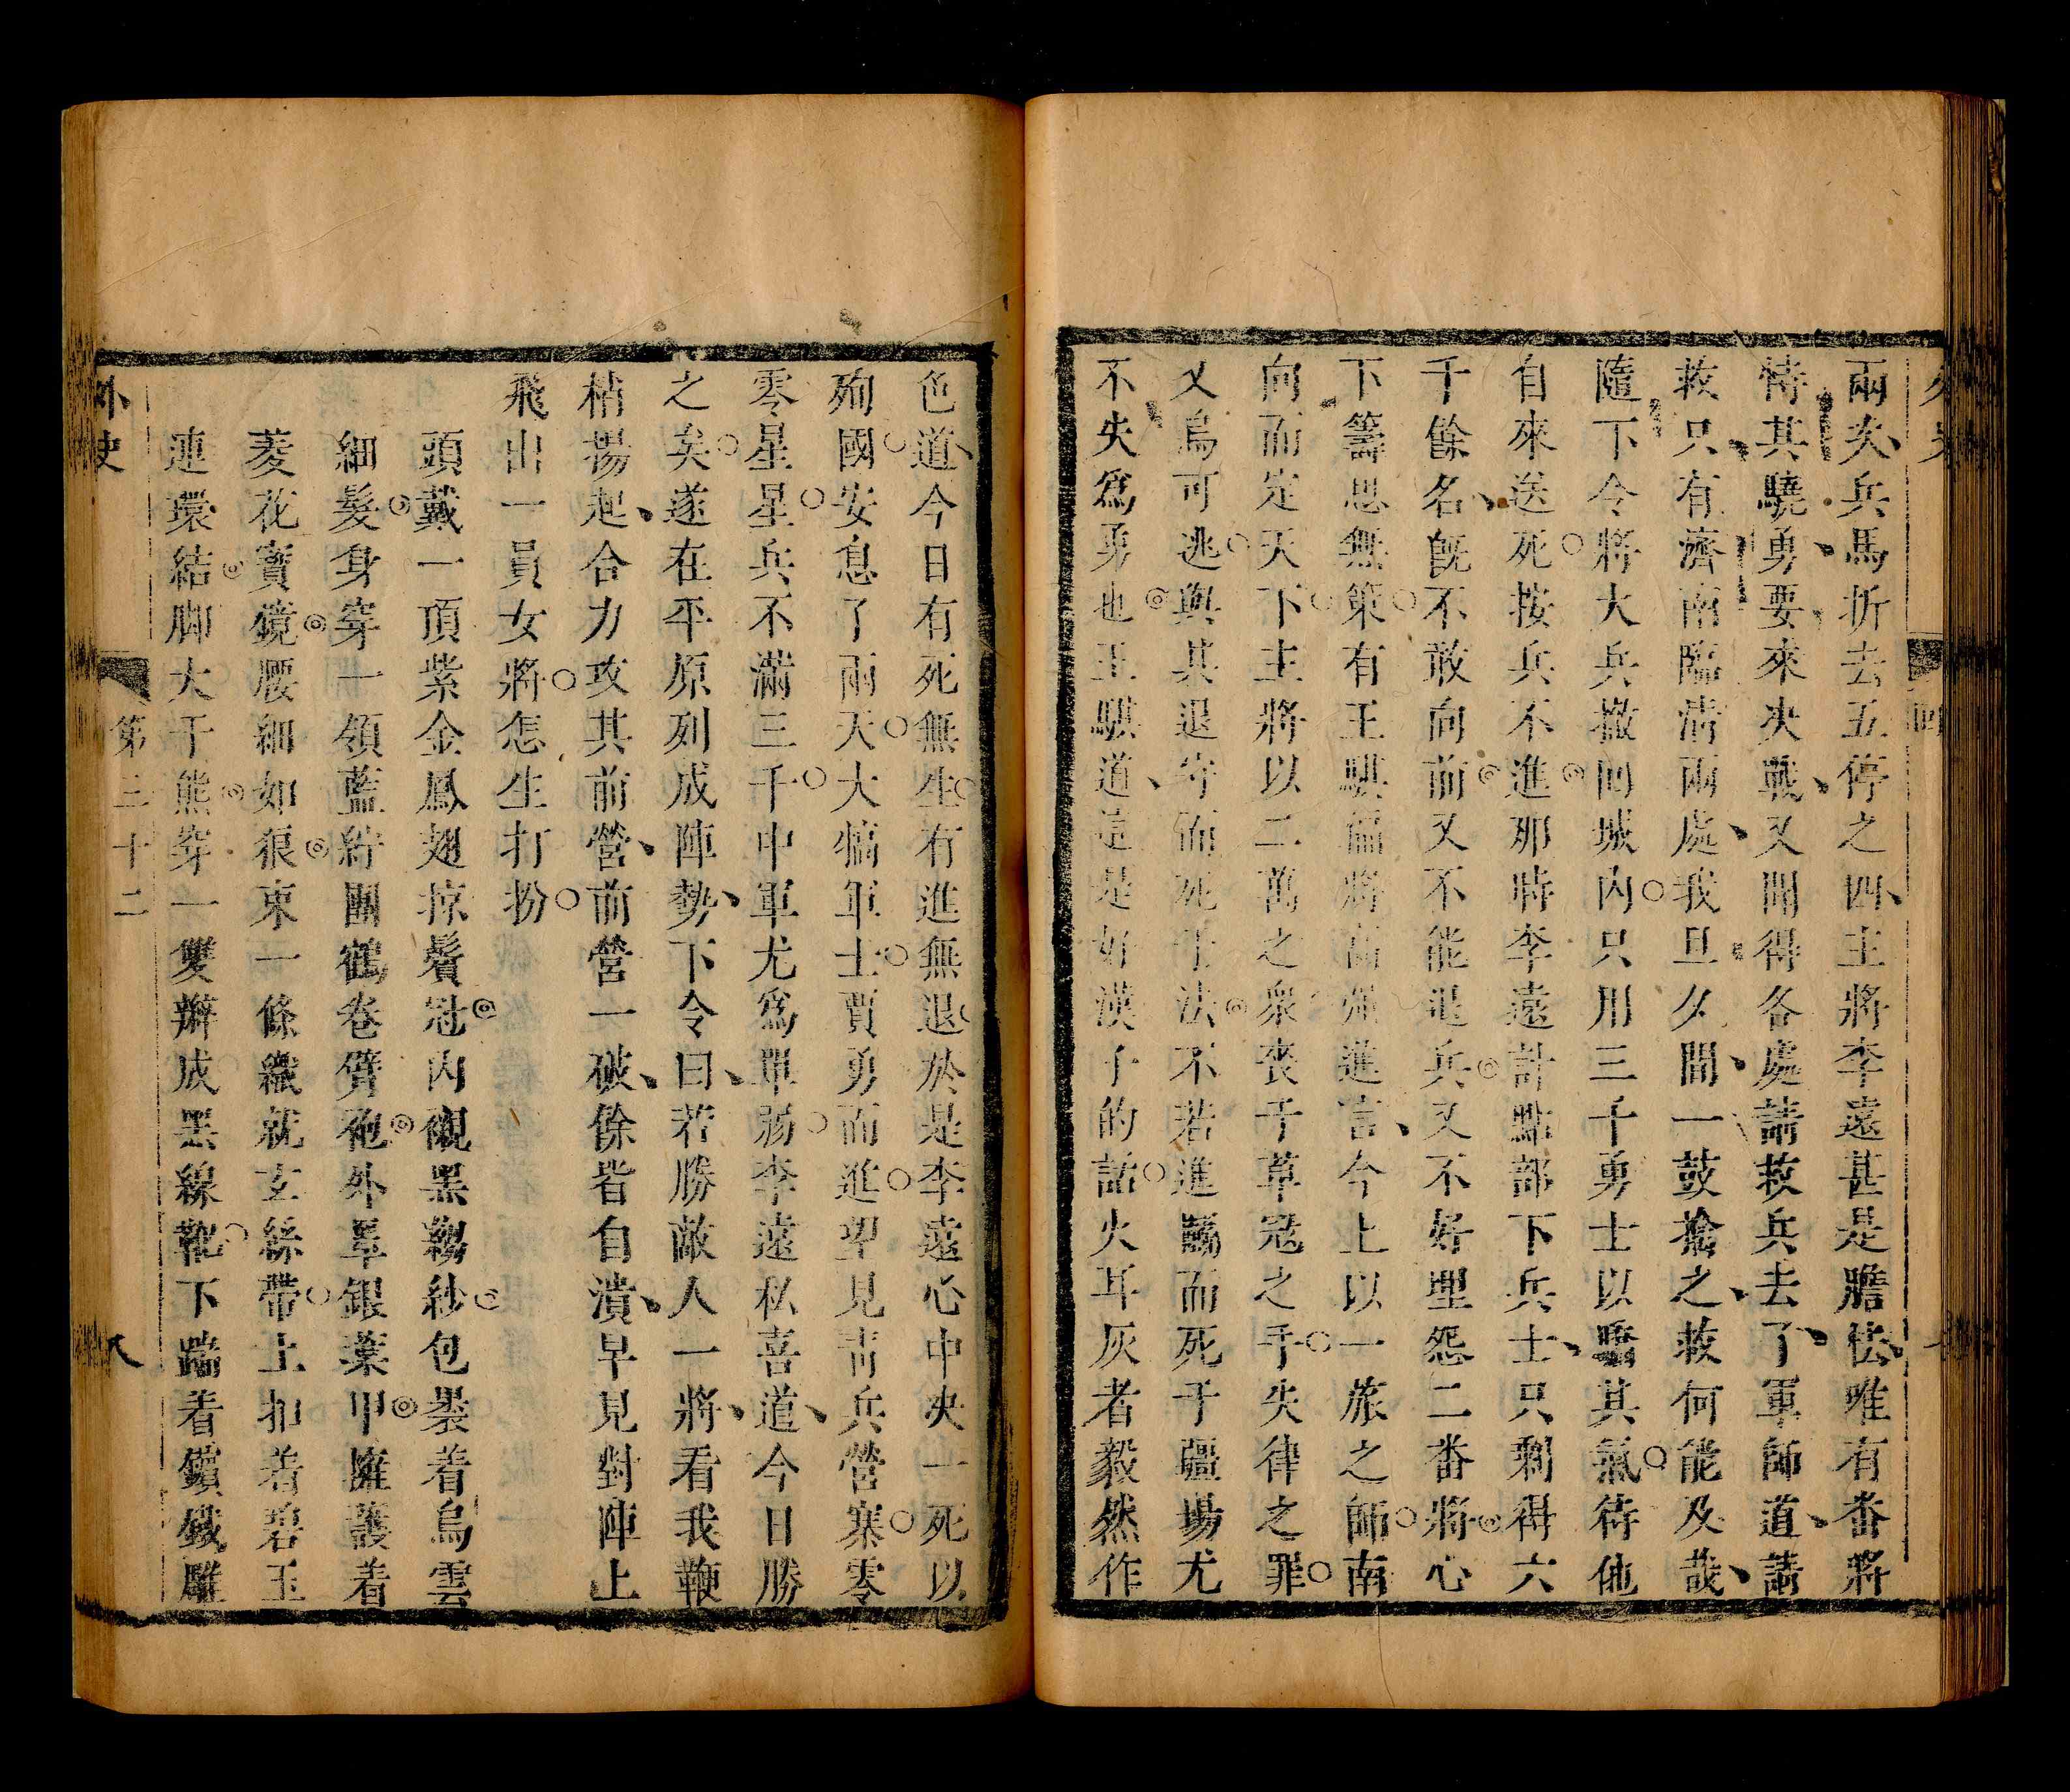 兩矣兵馬折去五停之四主將李遠甚是膽怯唯有畨將
恃其驍勇要來決戰又聞得各處請救兵去了軍師道請
救只有濟南臨清兩處我旦夕間一鼓擒之救何能及哉
隨下令將大兵撤回城內只用三千勇士以驕其氣待他
自來送死按兵不進那時李遠計點部下兵士只剩得六
千餘名旣不敢向前又不能退兵又不好埋怨二番將心
下籌思無策有王騏偏將高州進言今上以一旅之師南
向而定天下主將以二萬之衆喪于草冦之手失律之罪
又烏可逃與其退守而死于法不若進鬭而死于疆場尤
不失爲勇也王騏道這是好漢子的話火耳灰者毅然作
色道今日有死無生有進無退於是李遠心中决一死以
殉國安息了兩天大犒軍士賈勇而進望見靑兵營寨零
零星星兵不滿三千中軍尤爲單弱李遠私喜道今日勝
之矣遂在平原列成陣勢下令曰若勝敵人一將看我鞭
梢揚起合力攻其前營前營一破餘皆自潰早見對陣上
飛出一員女將怎生打扮
頭戴一頂紫金鳳翅掠鬢冠內襯黑縐紗包裹着烏雲
細髮身穿一領藍紵團鶴卷臂袍外罩銀葉甲擁護着
菱花寶鏡腰細如狼束一條織就玄絲帶上扣着碧玉
連環結脚大于熊穿一雙辦成黑線靴下踹着鑌鐵雕
外史
第三十二
八